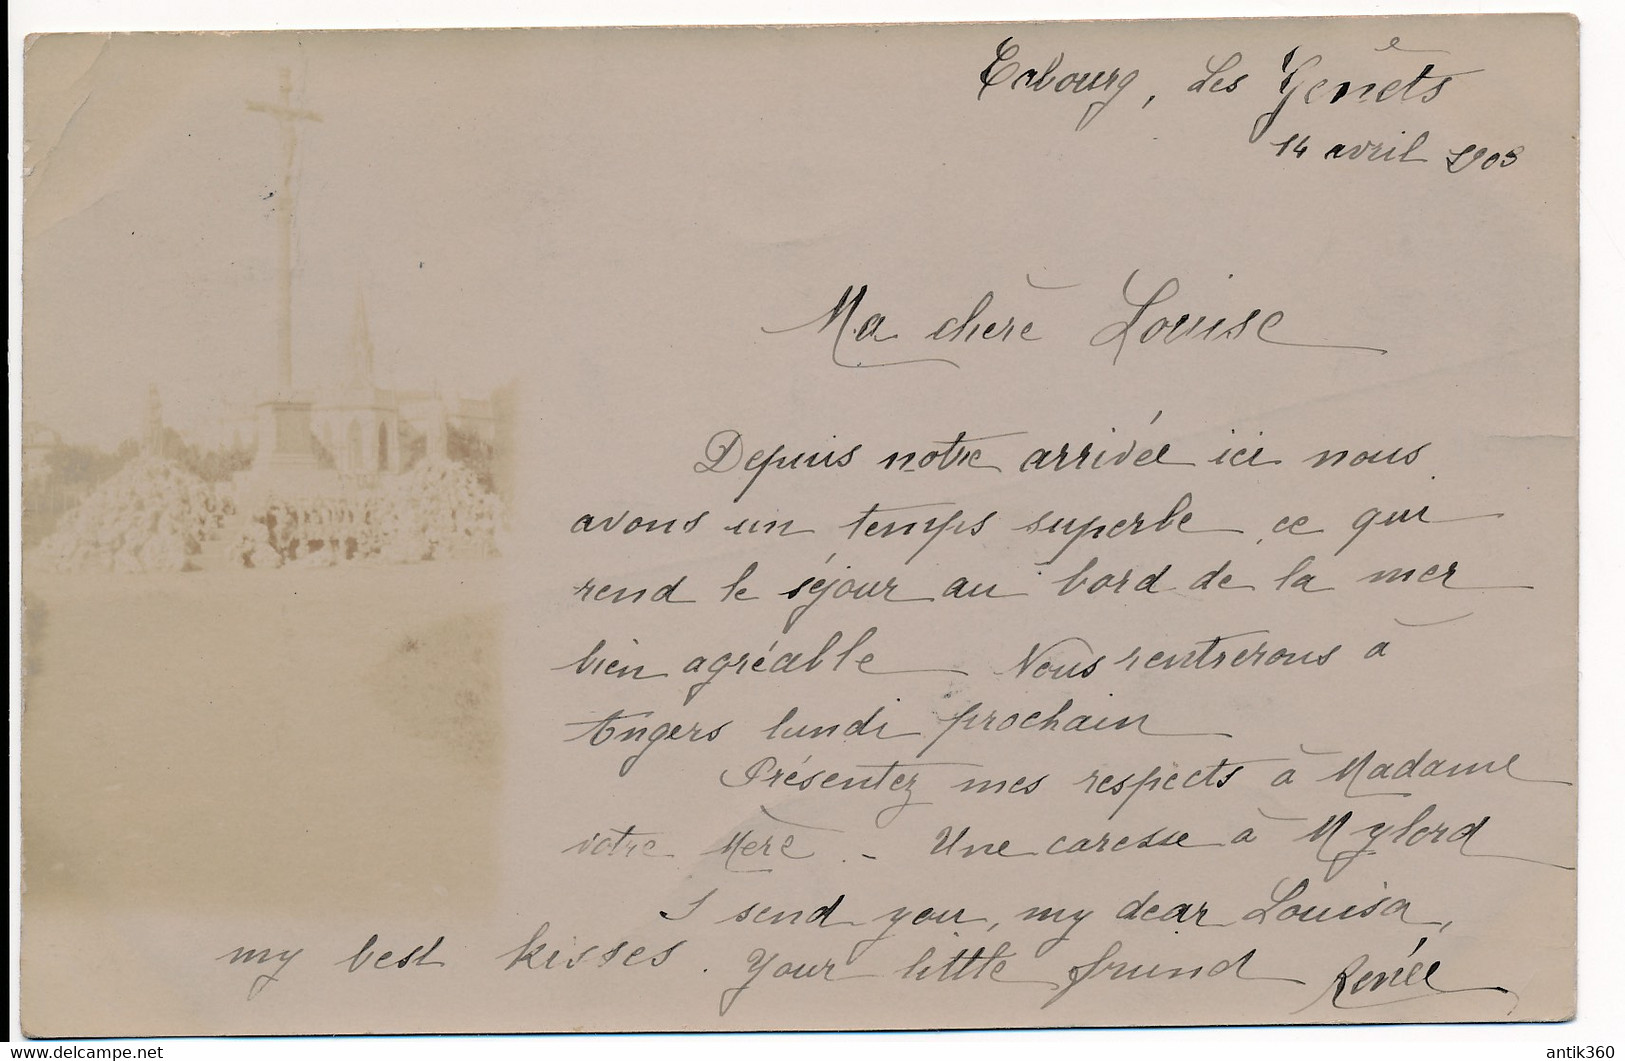 Cabourg, Les Genêts
14 avril 1903
Ma chère Louise
Depuis notre arrivée ici nous
avons un temps superbe ce qui
rend le séjour au bord de la mer
bien agréable Nous rentrerons à
Angers lundi prochain
Présentez mes respects à Madame
votre Mère. - Une caresse à Mylord
I send you, my dear Louisa,
my best kisses. Your little friend Renée
antik360